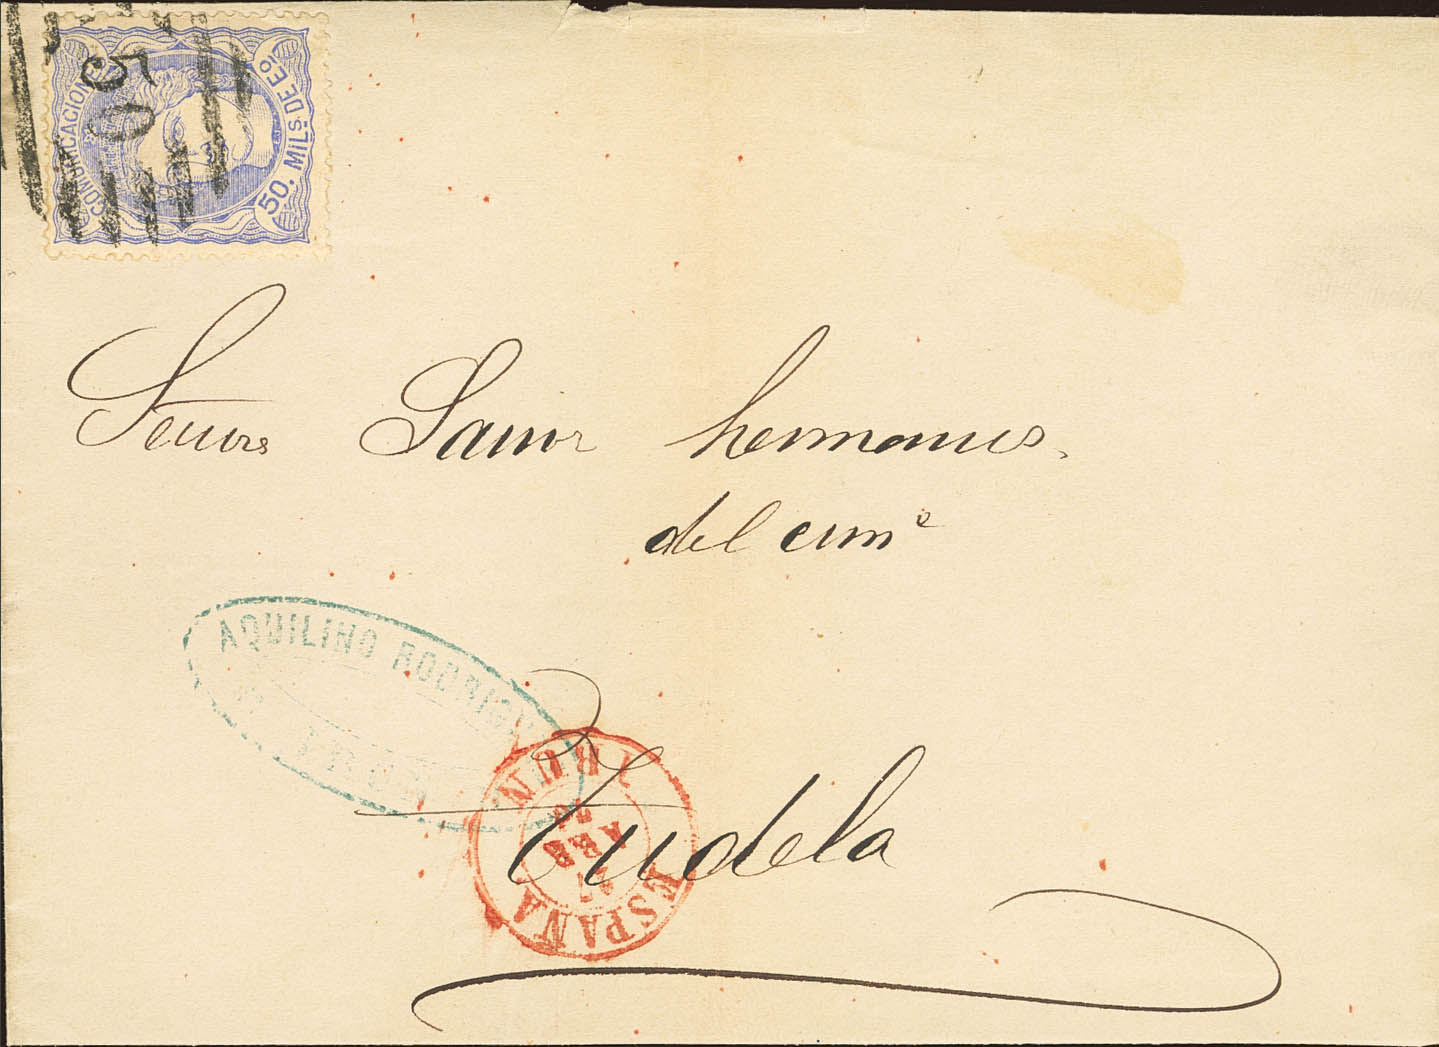 COMUNICACIONES
50. MILS. DE Eº
50
Señores Sainz hermanos.
del comº
AQUILINO RODRIGU
IRUN
IRUN
ABR
ESPAÑA
Tudela